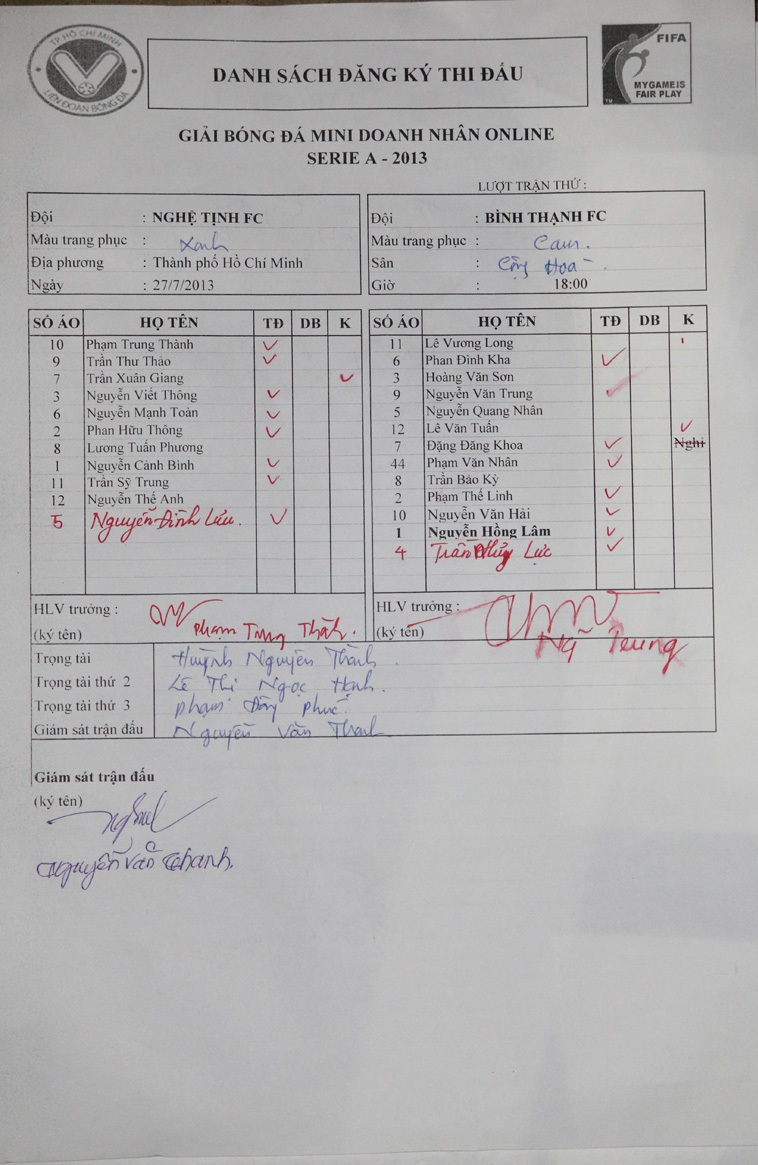 TP HỒ CHÍ MINH
LIÊN ĐOÀN BÓNG ĐÁ
DANH SÁCH ĐĂNG KÝ THI ĐẤU
FIFA
MYGAMEIS
FAIR PLAY
GIẢI BÓNG ĐÁ MINI DOANH NHÂN ONLINE
SERIE A - 2013
LƯỢT TRẬN THỨ :
Đội : NGHỆ TỊNH FC
Màu trang phục : Xanh
Địa phương : Thành phố Hồ Chí Minh
Ngày : 27/7/2013
Đội : BÌNH THẠNH FC
Màu trang phục : Cam.
Sân : Cộng Hoà
Giờ : 18:00
SỐ ÁO HỌ TÊN TĐ DB K
10 Phạm Trung Thành
9 Trần Thư Thảo
7 Trần Xuân Giang
3 Nguyễn Viết Thông
6 Nguyễn Mạnh Toàn
2 Phan Hữu Thông
8 Lương Tuấn Phương
1 Nguyễn Cảnh Bình
11 Trần Sỹ Trung
12 Nguyễn Thế Anh
5 Nguyễn Đình Lưu.
SỐ ÁO HỌ TÊN TĐ DB K
11 Lê Vương Long
6 Phan Đình Kha
3 Hoàng Văn Sơn
9 Nguyễn Văn Trung
5 Nguyễn Quang Nhân
12 Lê Văn Tuấn
7 Đặng Đăng Khoa Nghỉ
44 Phạm Văn Nhân
8 Trần Bảo Kỳ
2 Phạm Thế Linh
10 Nguyễn Văn Hải
1 Nguyễn Hồng Lâm
4 Trần Lực
HLV trưởng :
(ký tên) Phạm Trung Thành.
HLV trưởng :
(ký tên) Ng Trung
Trọng tài Huỳnh Nguyên Thành
Trọng tài thứ 2 Lê Thị Ngọc Hạnh.
Trọng tài thứ 3 Phạm Phúc
Giám sát trận đấu Nguyễn Văn Thanh
Giám sát trận đấu
(ký tên)
Nguyễn Văn Thanh.